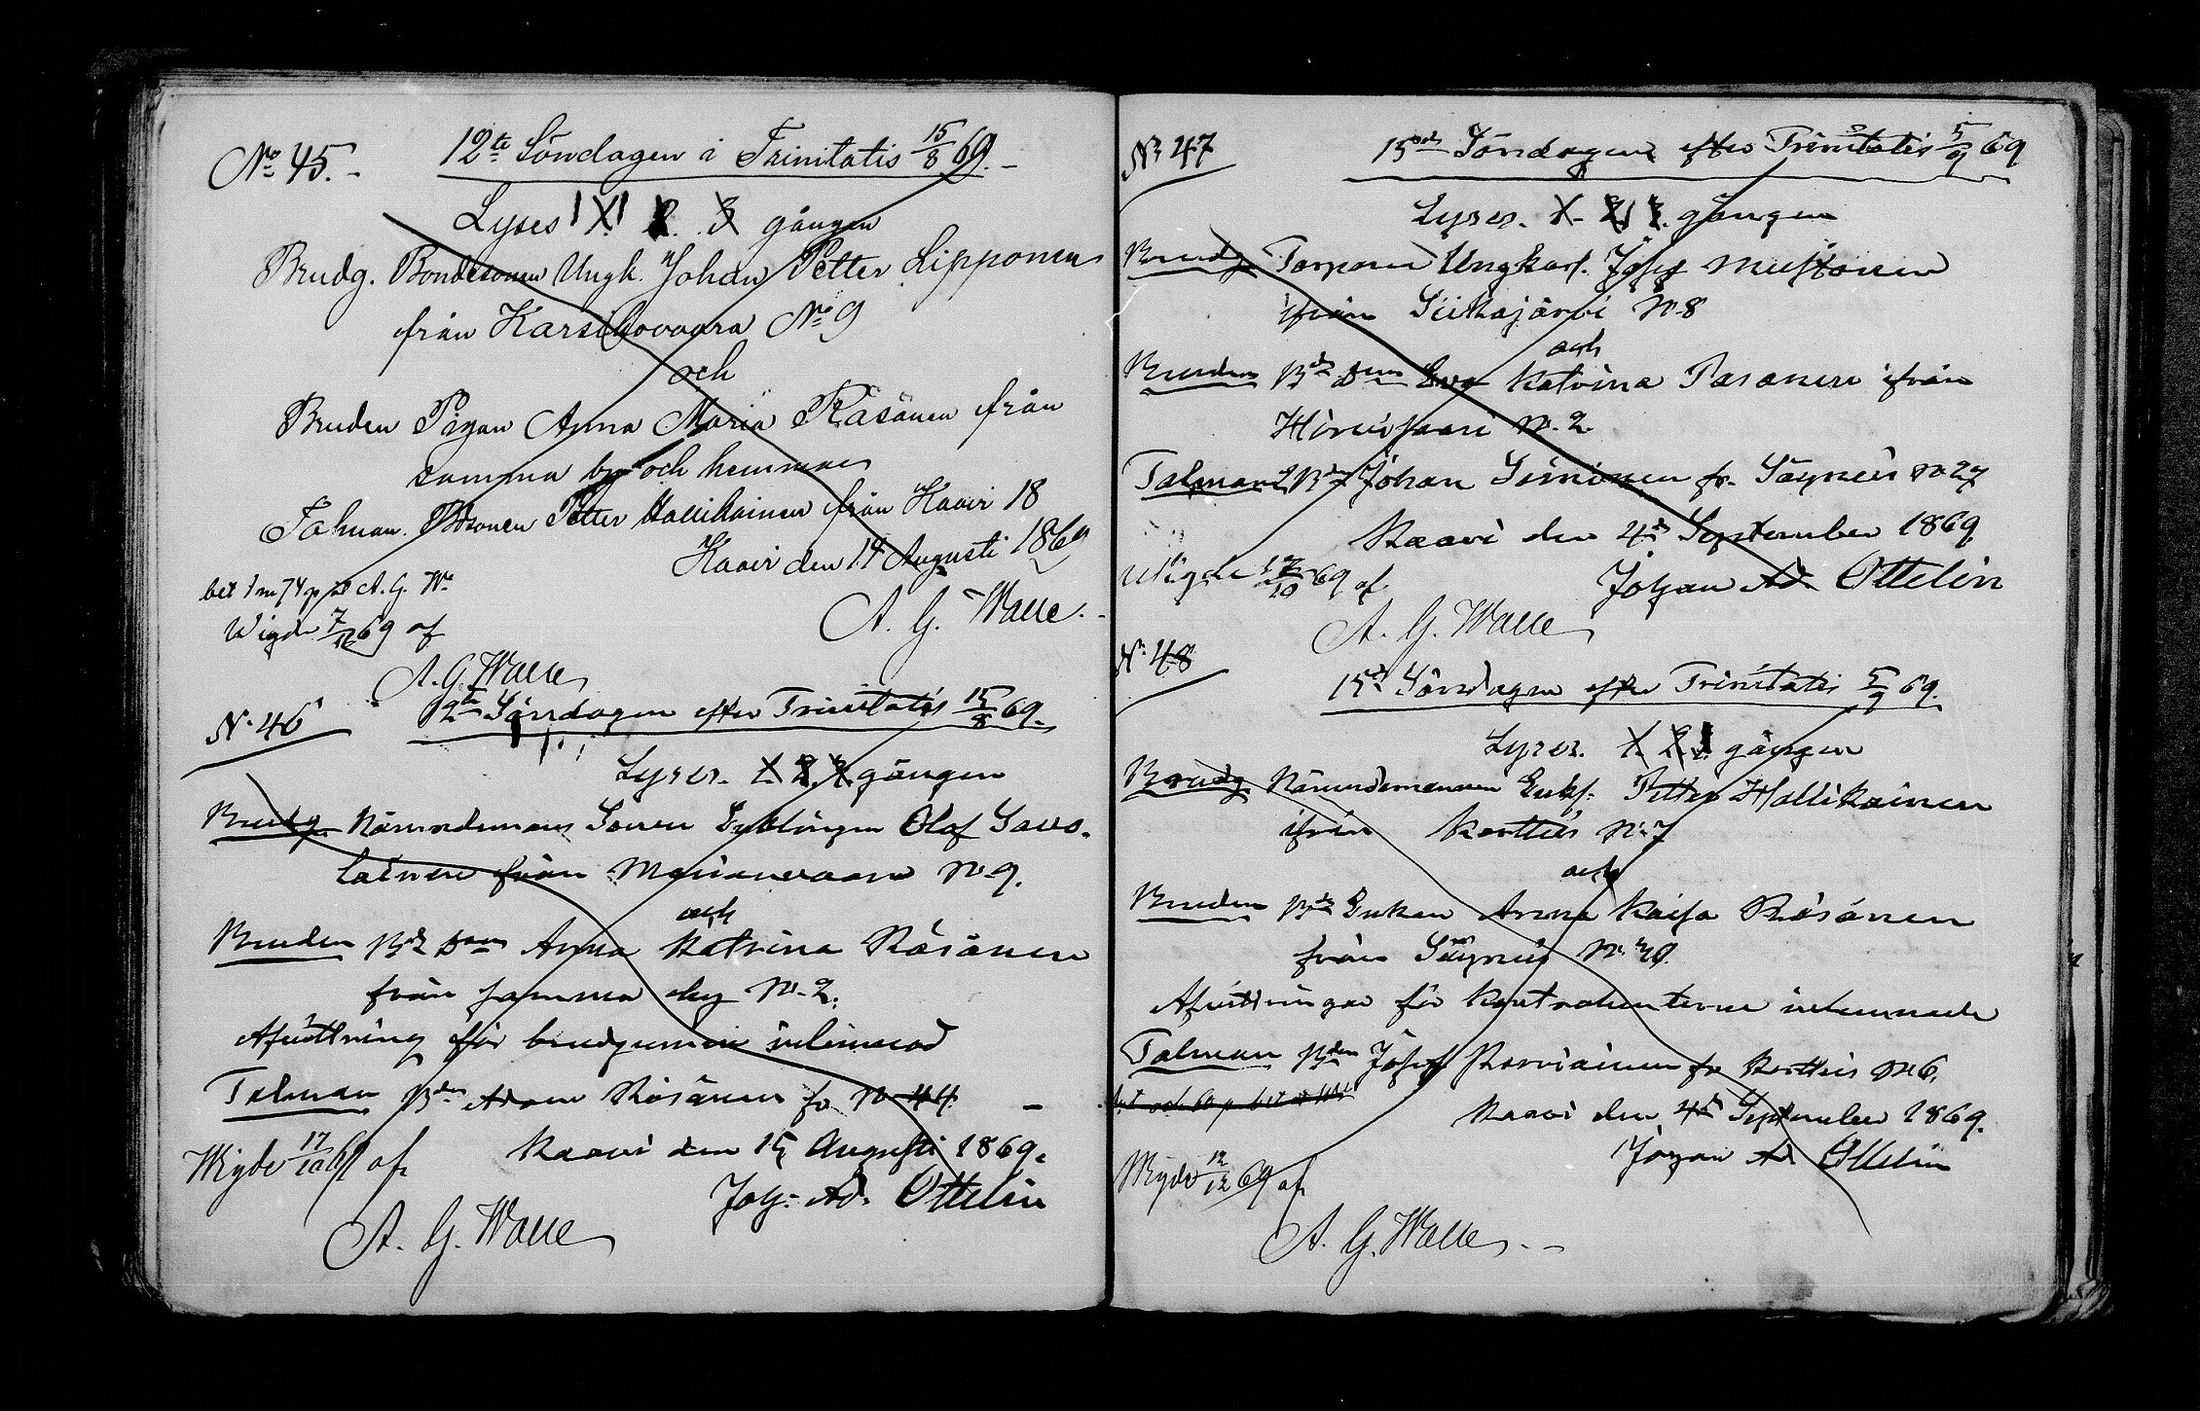 No 45.-
12te Söndagen i Trinitatis 15/8 69.-
Lyses 1. 2. 3 gången
Brudg. Bondesonen Ungk. Johan Petter Lipponen
från Karsikovaara No 9
och
Bruden Pigan Anna Maria Räsänen från
samma by och hemman
Talman. Bdsonen Petter Hallikainen från Kaavi 18
Kaavi den 14 Augusti 1869
A. G. Walle.-
bet 1 m 74 p A. G. We
Wigde 7/12 69 af
A. G. Walle
N. 46
12te Söndagen efter Trinitatis 15/8 69.
Lyses. 1. 2. 3 gången
Brudg. Nämndemans Sonen Enklingen Olof Savo-
lainen från Marianvaara No 9.
och
Bruden Anna Katrina Räsänen
från samma by No 2.
Afvittring för brudgummen inlemnad
Talman Bden Adam Räsänen fr No 44. -
Kaavi den 15 Augusti 1869.
Joh: Ad. Ottelin
Wigde 17/10 69 af
A. G. Walle
No 47
15de Söndagen efter Trinitatis 5/9 69
Lyses. 1. 2. 3. gången
Brudg. Torparen Ungkarl. Josef Mustonen
ifrån Siikajärvi No 8
och
Bruden Eva Katrina Pasanen ifrån
Hirvisaari No. 2.
Talman Johan Siminen fr. Säyneis No 27
Kaavi den 4de September 1869.
Johan Ad. Ottelin
Wigde 69 af
A. G. Walle
N. 48
15de Söndagen efter Trinitatis 5/9 69.
Lyses. 1. 2. 3 gången
Brudg. Nämndemannen Enkl. Petter Hallikainen
ifrån Kortteis No 7
och
Bruden Bde Enkan Anna Kaisa Räsänen
från Säyneis No
Afvittringar för kontrahenterne inlemnade
Talman Bden Josef Karviainen fr Kortteis No 6.
Kaavi den 4de September 1869.
Johan Ad Ottelin
Wigde 12/12 69 af
A. G. Walle.-